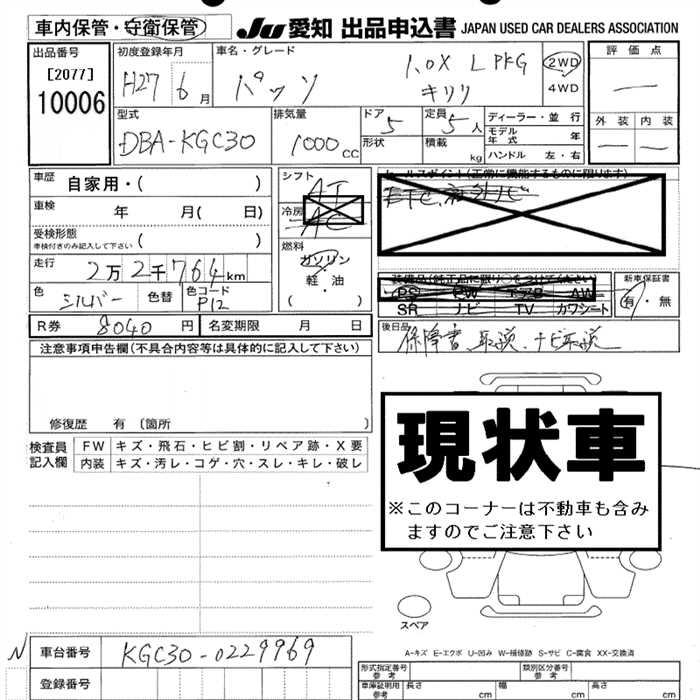 車内保管・守衛保管
JU 愛知 出品申込書 JAPAN USED CAR DEALERS ASSOCIATION
出品番号
[2077]
10006
初度登録年月
H27 6月
車名・グレード
パッソ
1.0X L PKG
キリリ
2WD
4WD
評価点
―
外装 内装
― ―
型式
DBA-KGC30
排気量
1000cc
ドア 5
形状
定員 5人
積載 kg
ディーラー・並行
モデル年式 年
ハンドル 左・右
車歴 自家用・( )
車検 年 月( 日)
受検形態
車検付きのみ記入して下さい ( )
走行 2万2千764km
色 シルバー 色替 色コード P12
シフト AT
冷房 AC
燃料
ガソリン
軽・油
( ・ )
セールスポイント(正常に機能するものに限ります)
装備品(純正品に限り○をつけてください)
PS PW エアB AW
SR ナビ TV カワシート
新車保証書
有・無
R券 8040円 名変期限 月 日
後日品 保障書 取説、ナビ取説
注意事項申告欄(不具合内容等は具体的に記入して下さい)
修復歴 有 〔箇所 〕
検査員記入欄
FW キズ・飛石・ヒビ割・リペア跡・X要
内装 キズ・汚レ・コゲ・穴・スレ・キレ・破レ
現状車
※このコーナーは不動車も含み
ますのでご注意下さい
スペア
A-キズ E-エクボ U-凹み W-補修跡 S-サビ C-腐食 XX-交換済
N 車台番号 KGC30-0229969
登録番号
形式指定番号 参考
類別区分番号 参考
車庫証明用 参考 長さ cm 幅 cm 高さ cm